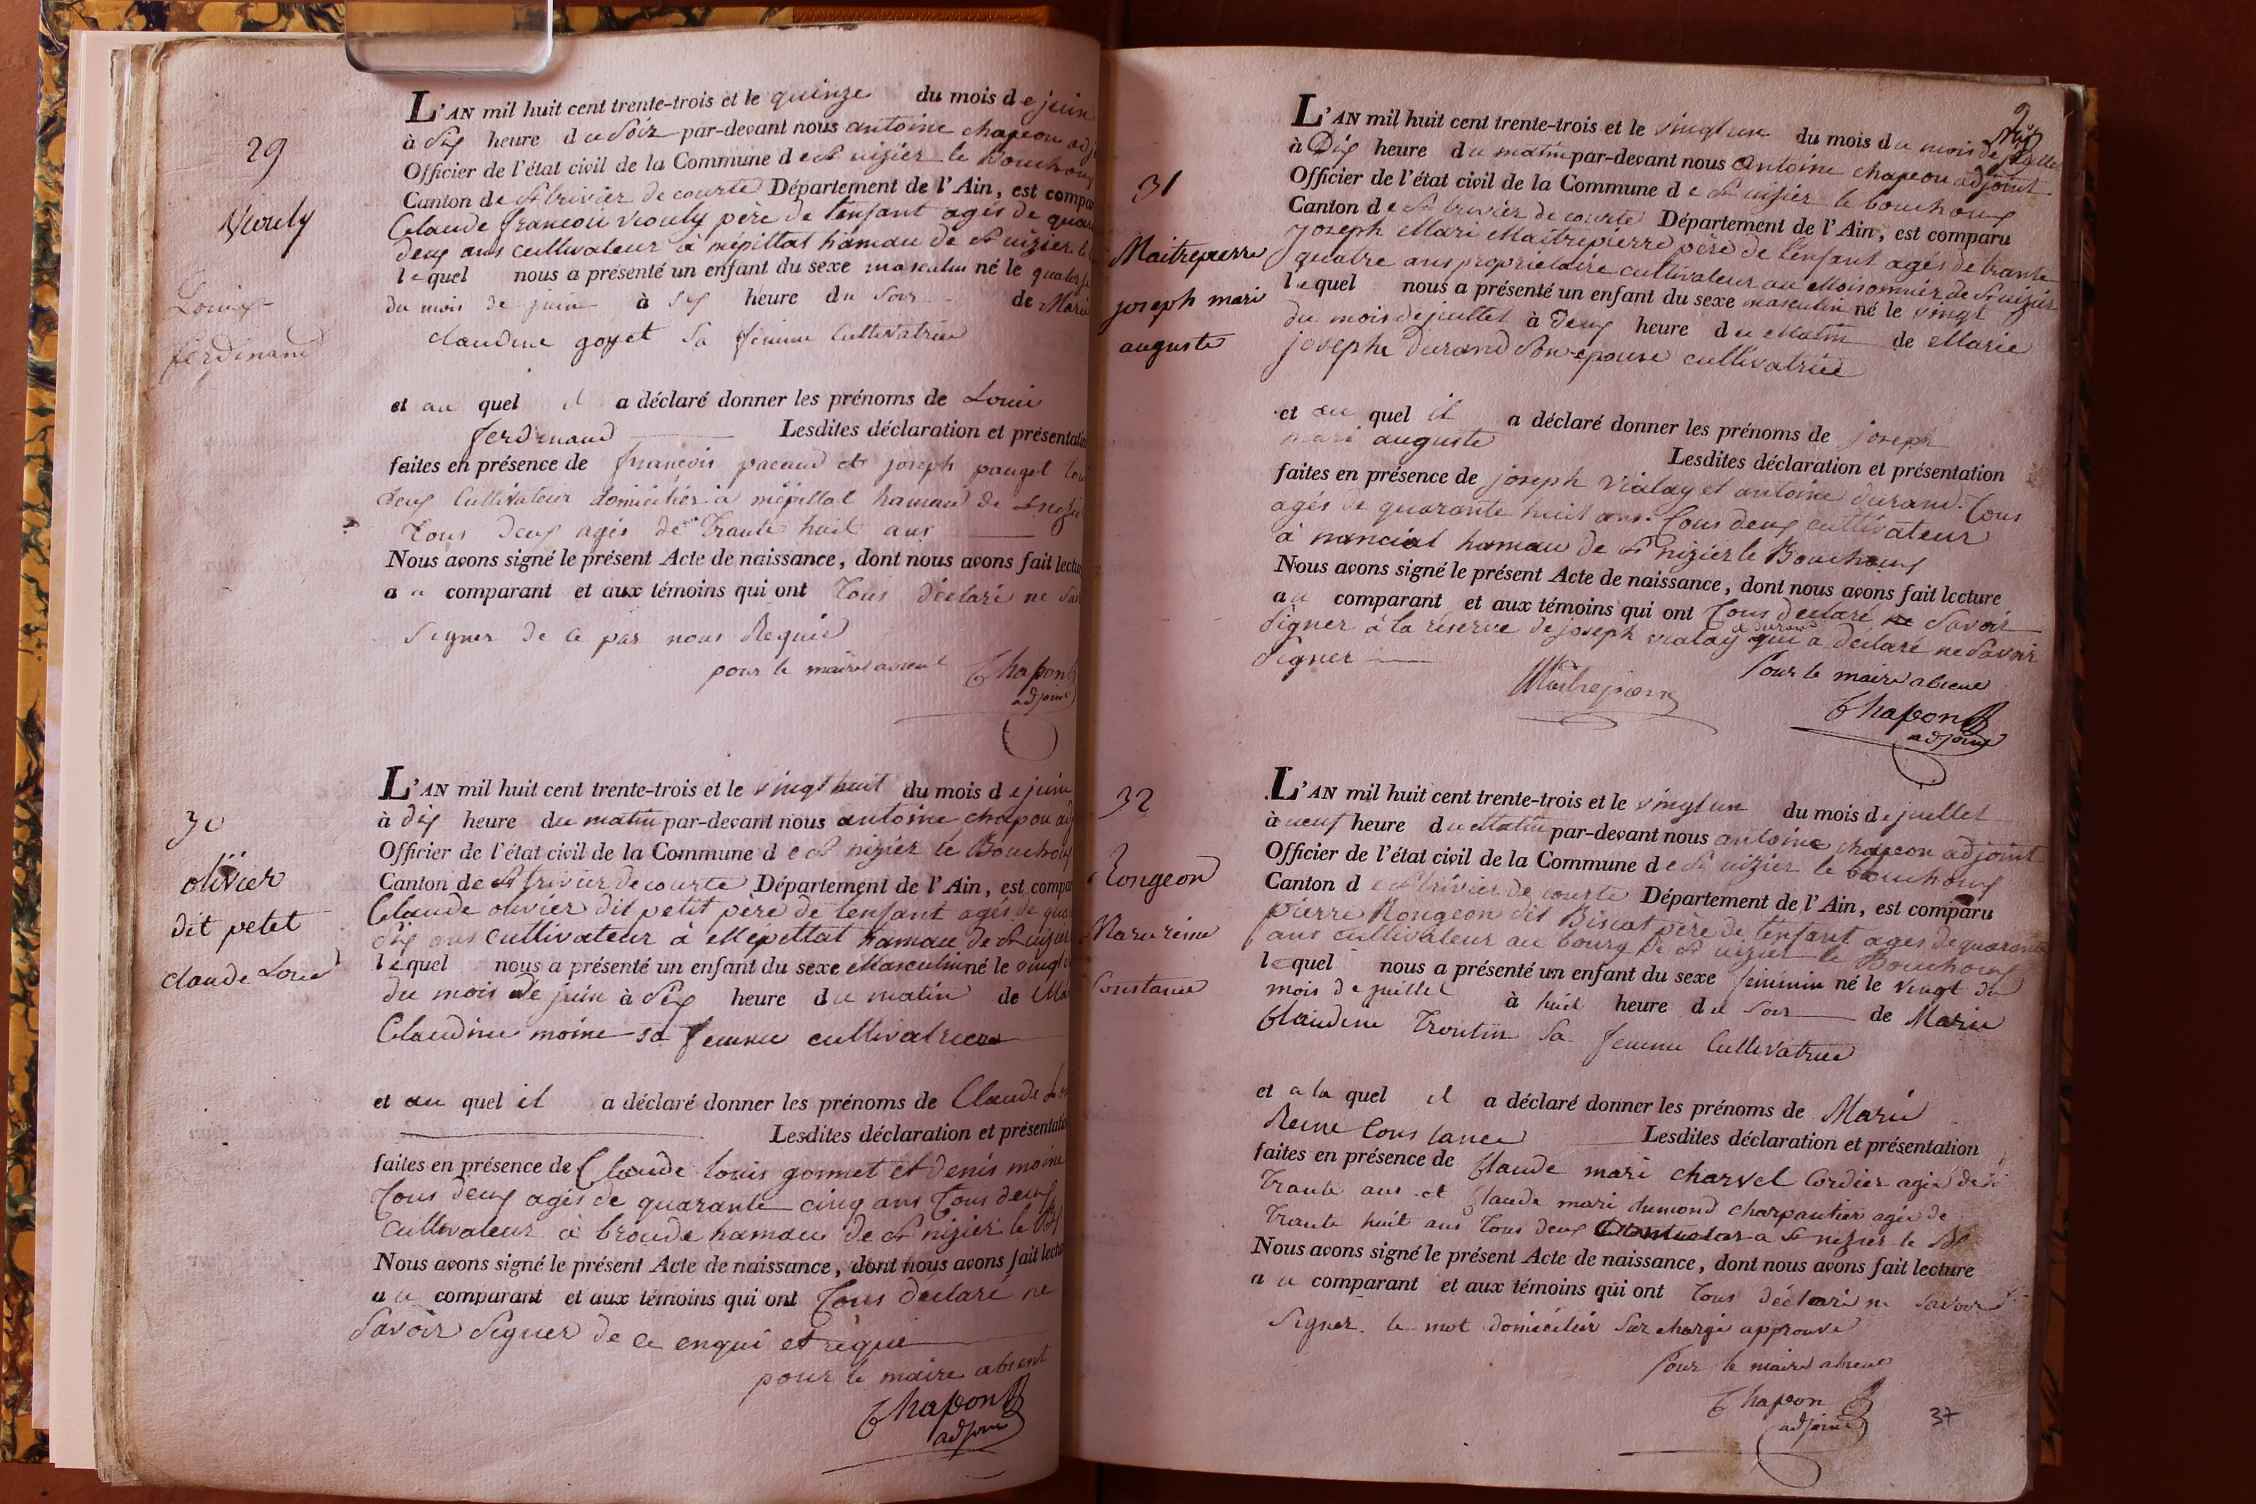 29
Vieuly
Louis
ferdinand
L'AN mil huit cent trente-trois et le quinze du mois de juin
à six heure du Soir par-devant nous antoine chapon adj
Officier de l'état civil de la Commune de St nizier le Bouchoux
Canton de St trivier de courte Département de l'Ain, est compa
Claude françois père de lenfant agés de quar
deux ans cultivateur à mépillat hamau de St nizier le
lequel nous a présenté un enfant du sexe masculin né le quatorze
du mois de juin à six heure du Soir de Marie
claudine goyet Sa femme Cultivatrice
et au quel il a déclaré donner les prénoms de Louis
ferdinand Lesdites déclaration et présentation
faites en présence de françois pacaud et joseph pauget tous
deux Cultivateur domiciliés à mépillat hamau de
Tous deux agés de Trante huit ans
Nous avons signé le présent Acte de naissance, dont nous avons fait lectu
au comparant et aux témoins qui ont Tous déclaré ne Sav
Signer de ce par nous Requis
pour le maire absent Chapon
adjoint
30
olivier
dit petit
claude Loui
L'AN mil huit cent trente-trois et le vingt huit du mois de juin
à dix heure du matin par-devant nous antoine chapon adj
Officier de l'état civil de la Commune de St nizier le Bouchoux
Canton de St trivier de courte Département de l'Ain, est compa
Claude olivier dit petit père de lenfant agés de quar
dix ans cultivateur à Mépillat hamau de St nizier
lequel nous a présenté un enfant du sexe Masculin né le vingt
du mois de juin à Six heure du matin de Ma
Claudine moine sa femme cultivatrice
et au quel il a déclaré donner les prénoms de Claude Lo
Lesdites déclaration et présentatio
faites en présence de Claude louis gonnet et denis moine
Tous deux agés de quarante cinq ans Tous deux
Cultivateur à broude hamau de St nizier le B
Nous avons signé le présent Acte de naissance, dont nous avons fait lectu
au comparant et aux témoins qui ont Tous déclaré ne
Savoir Signer de ce enqui et requi
pour le maire absent
Chapon
adjoint
31
Maitrepierre
joseph mari
auguste
L'AN mil huit cent trente-trois et le vingt un du mois du mois de juillet
à Dix heure du matin par-devant nous Antoine chapon adjoint
Officier de l'état civil de la Commune de St nizier le bouchoux
Canton de St trivier de courte Département de l'Ain, est comparu
joseph Mari Maitrepierre père de lenfant agés de trante
quatre ans propriétaire cultivateur au Moisonnier de St nizier
lequel nous a présenté un enfant du sexe masculin né le vingt
du mois de juillet à deux heure du Matin de Marie
josephe durand Son epouse cultivatrice
et au quel il a déclaré donner les prénoms de joseph
mari auguste Lesdites déclaration et présentation
faites en présence de joseph vialay et antoine durand Tous
agés de quarante huit ans Tous deux cultivateur
à manciat hamau de St nizier le Bouchoux
Nous avons signé le présent Acte de naissance, dont nous avons fait lecture
au comparant et aux témoins qui ont Tous déclaré ne Savoir
et durand
Signer à la reserve de joseph vialay qui a declaré ne Savoir
Signer
Maitrepierre Pour le maire absent
Chapon
adjoint
32
Rongeon
Marie reine
Constance
L'AN mil huit cent trente-trois et le vingt un du mois de juillet
à neuf heure du Matin par-devant nous antoine chapon adjoint
Officier de l'état civil de la Commune de St nizier le bouchoux
Canton de St trivier de courte Département de l'Ain, est comparu
pierre Rongeon dit Biscat père de lenfant ages de quarante
ans cultivateur au bourg de St nizier le Bouchoux
lequel nous a présenté un enfant du sexe feminin né le vingt du
mois de juillet à huit heure du Soir de Marie
Claudine Troutin Sa femme Cultivatrice
et a la quel il a déclaré donner les prénoms de Marie
Reine Constance Lesdites déclaration et présentation
faites en présence de Claude mari charvet Cordier agés de
Trante ans et Claude mari dumond charpantier agés de
Trante huit ans Tous deux a St nizier le B
Nous avons signé le présent Acte de naissance, dont nous avons fait lecture
au comparant et aux témoins qui ont Tous déclaré ne Savoir
Signer le mot domicilier Sur chargé approuvé
Pour le maire absent
Chapon
adjoint
37